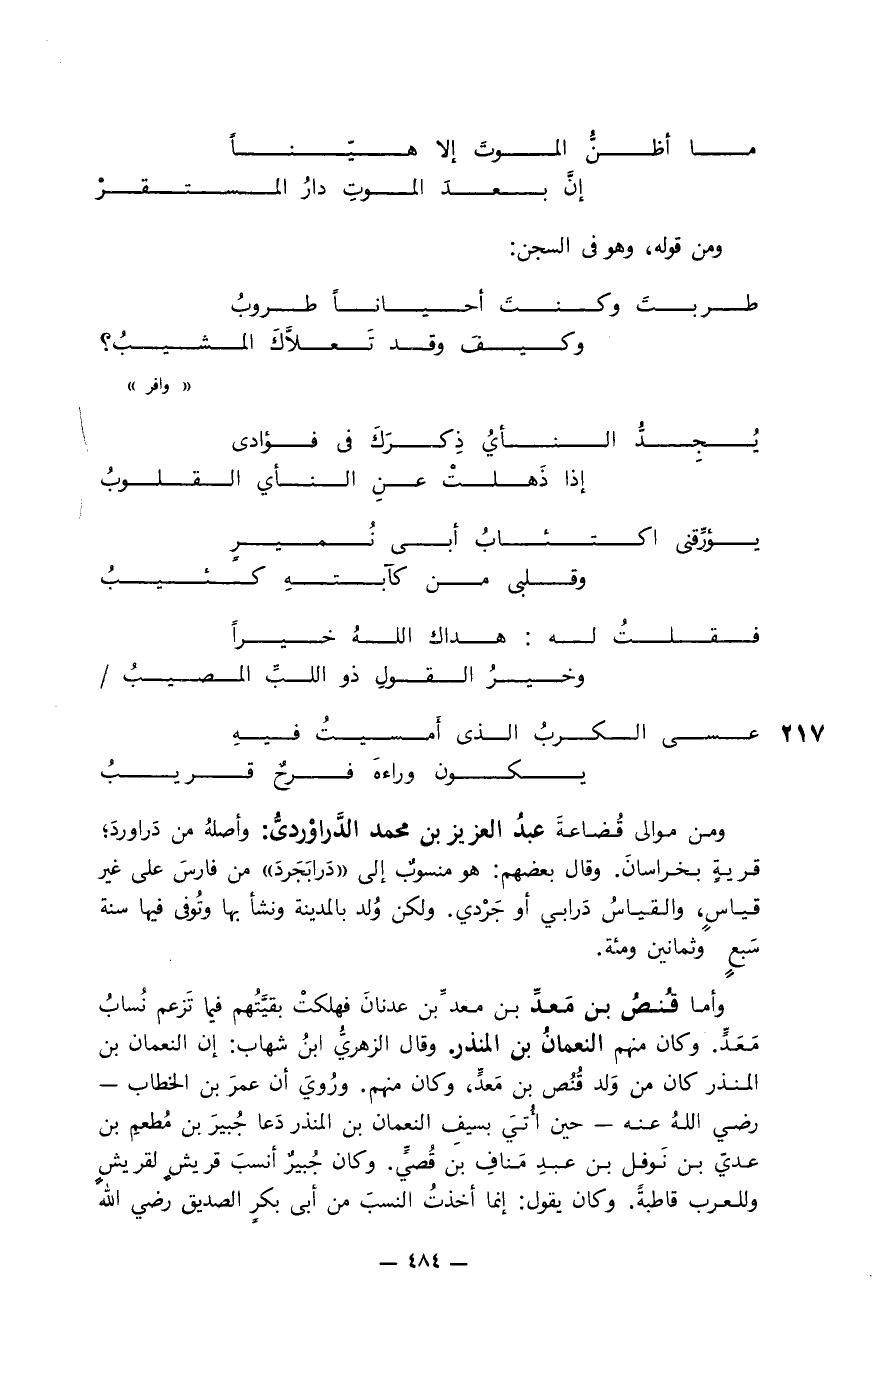 ما أظنُّ الموتَ إلا هيّناً
إنَّ بعدَ الموتِ دارُ المستقرْ
ومن قوله، وهو فى السجن:
طربتَ وكنتَ أحياناً طروبُ
وكيفَ وقد تَعلاَّكَ المشيبُ؟
« وافر »
يُجِدُّ النأيُ ذِكرَكَ فى فؤادى
إذا ذَهلتْ عنِ النأي القلوبُ
يؤرِّقنى اكتئابُ أبى نُميرٍ
وقلبى من كآبتهِ كئيبُ
فقلتُ له : هداك اللهُ خيراً
وخيرُ القولِ ذو اللبِّ المصيبُ /
٢١٧ عسى الكربُ الذى أمسيتُ فيهِ
يكون وراءهَ فرجٌ قريبُ
ومن موالى قُضاعةَ عبدُ العزيز بن محمد الدَّراوْردىُّ: وأصلهُ من دَراوردَ؛
قريةٍ بخراسانَ. وقال بعضهم: هو منسوبٌ إلى «دَرابَجَردَ» من فارسَ على غير
قياسٍ، والقياسُ دَرابي أو جَرْدي. ولكن وُلد بالمدينة ونشأ بها وتُوفى فيها سنة
سَبعٍ وثمانين ومئة.
وأما قُنصُ بن مَعدِّ بن معدِّ بن عدنانَ فهلكتْ بقيَّتُهم فيما تَزعم نُسابُ
مَعَدٍّ. وكان منهم النعمانُ بن المنذر. وقال الزهريُّ ابنُ شهاب: إن النعمان بن
المنذر كان من وَلد قُنُص بن مَعدٍّ، وكان منهم. ورُويَ أن عمرَ بن الخطاب –
رضي اللهُ عنه – حين أُتيَ بسيفِ النعمان بن المنذر دَعا جُبيرَ بن مُطعم بن
عديّ بن نَوفل بن عبدِ مَنافِ بن قُصيٍّ. وكان جُبيرٌ أنسبَ قريشٍ لقريشٍ
وللعرب قاطبةً. وكان يقول: إنما أخذتُ النسبَ من أبى بكرٍ الصديق رضي الله
– ٤٨٤ –